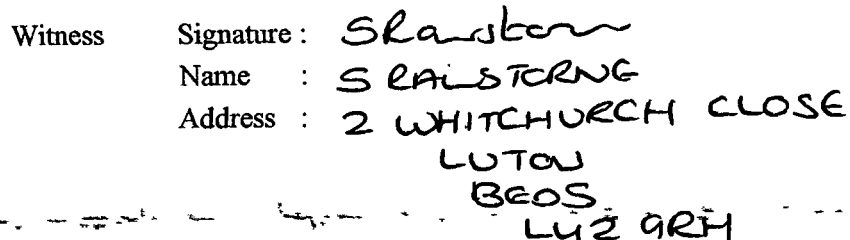 Witness Signature :
Name : S RAILSTORNG
Address : 2 WHITCHURCH CLOSE
LUTON
BEDS
LU2 9RH